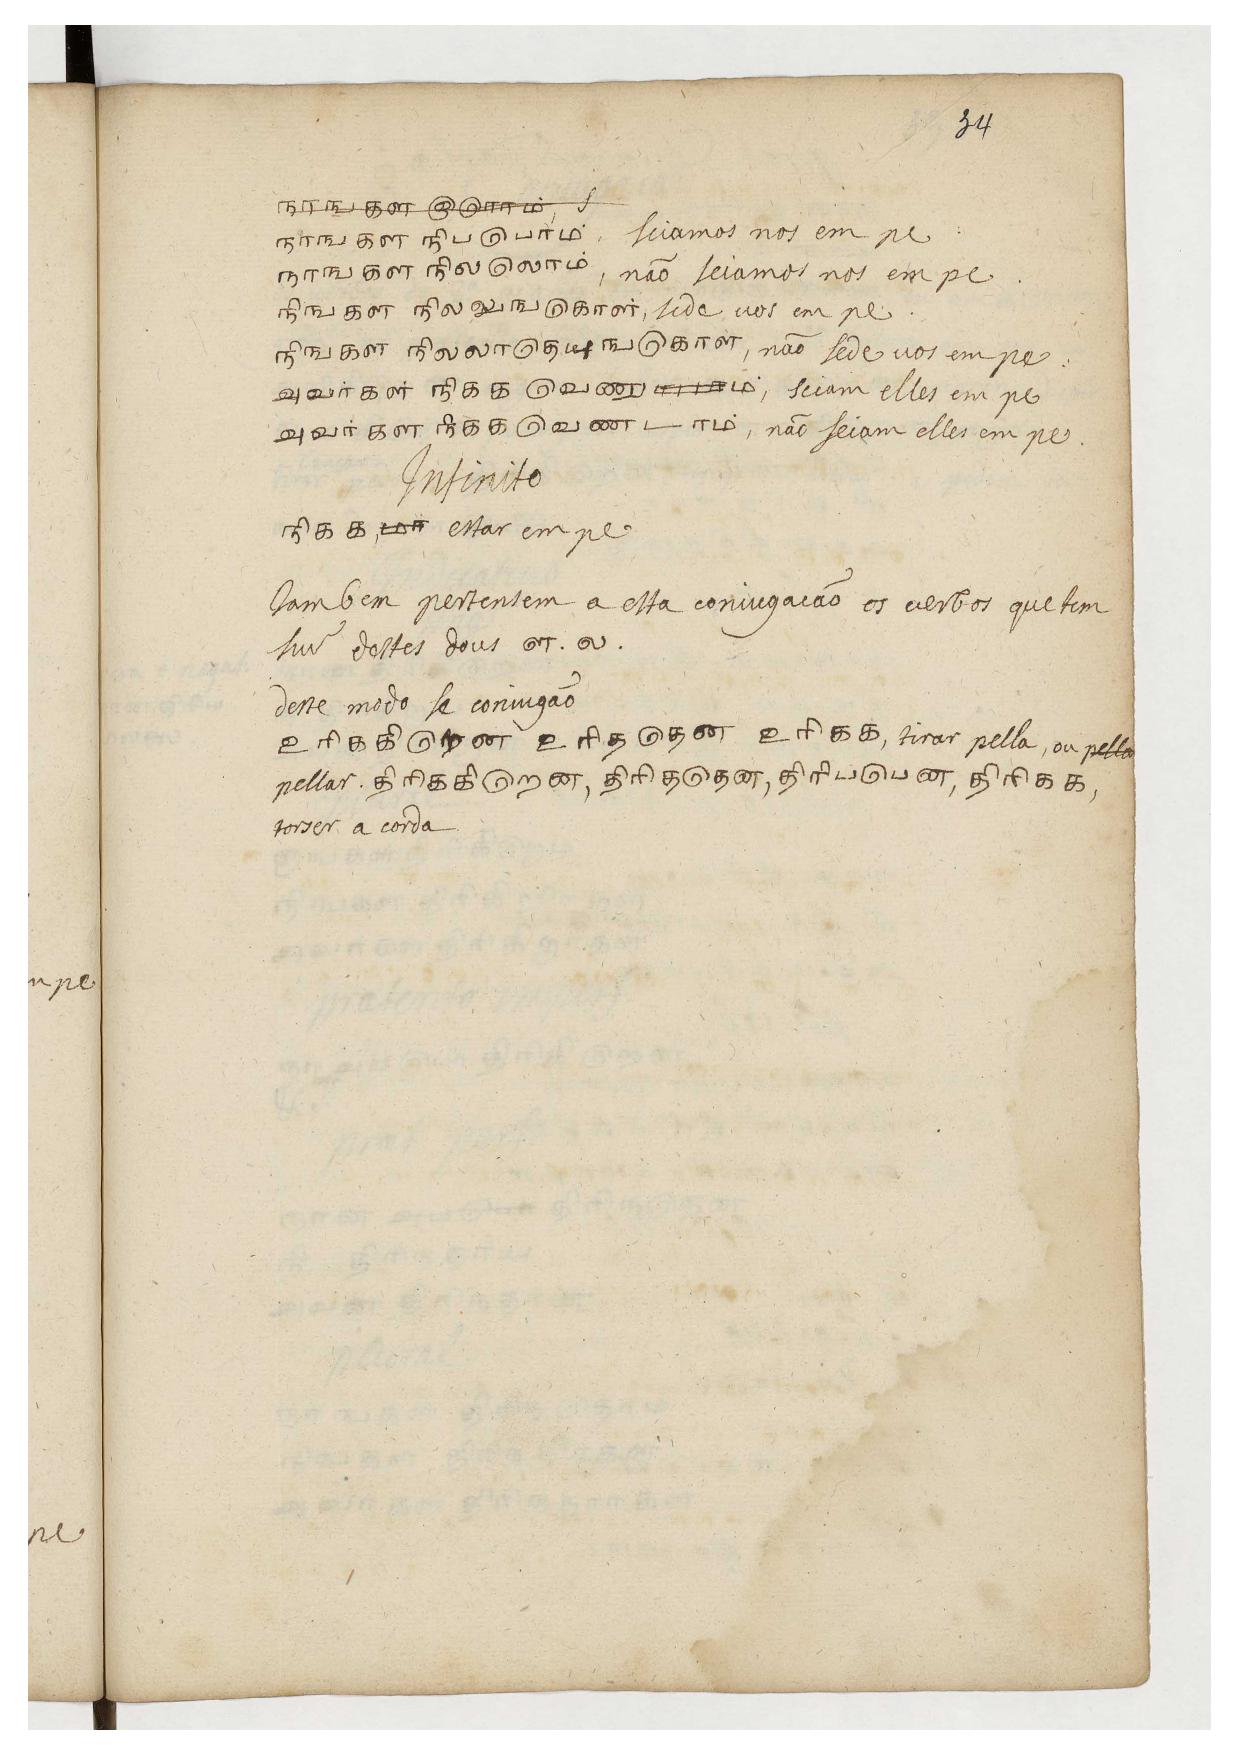 34
நாஙகள
நாஙகள நிபடுபாம், seiamos nos em pe
நாஙகள நிலலொம், não seiamos nos em pe.
நிஙகள நிலலுஙகொள், sede uos em pe.
நிஙகள நிலலாதெயுஙகொள, não sede uos em pe.
அவர்கள் நிகக வெணு ம், seiam elles em pe
அவர்கள நிகக வெணடாம், não seiam elles em pe.
Infinito
நிகக, estar em pe
Tambem pertensem a esta coniugacão os uerbos que tem
destes dous ள. ல.
deste modo se coniugão
உரிககிறென உரிததென உரிகக, tirar pella, ou pella
pellar. திரிககிறென, திரிததென, திரிபபென, திரிகக,
torser a corda
m pe
pe